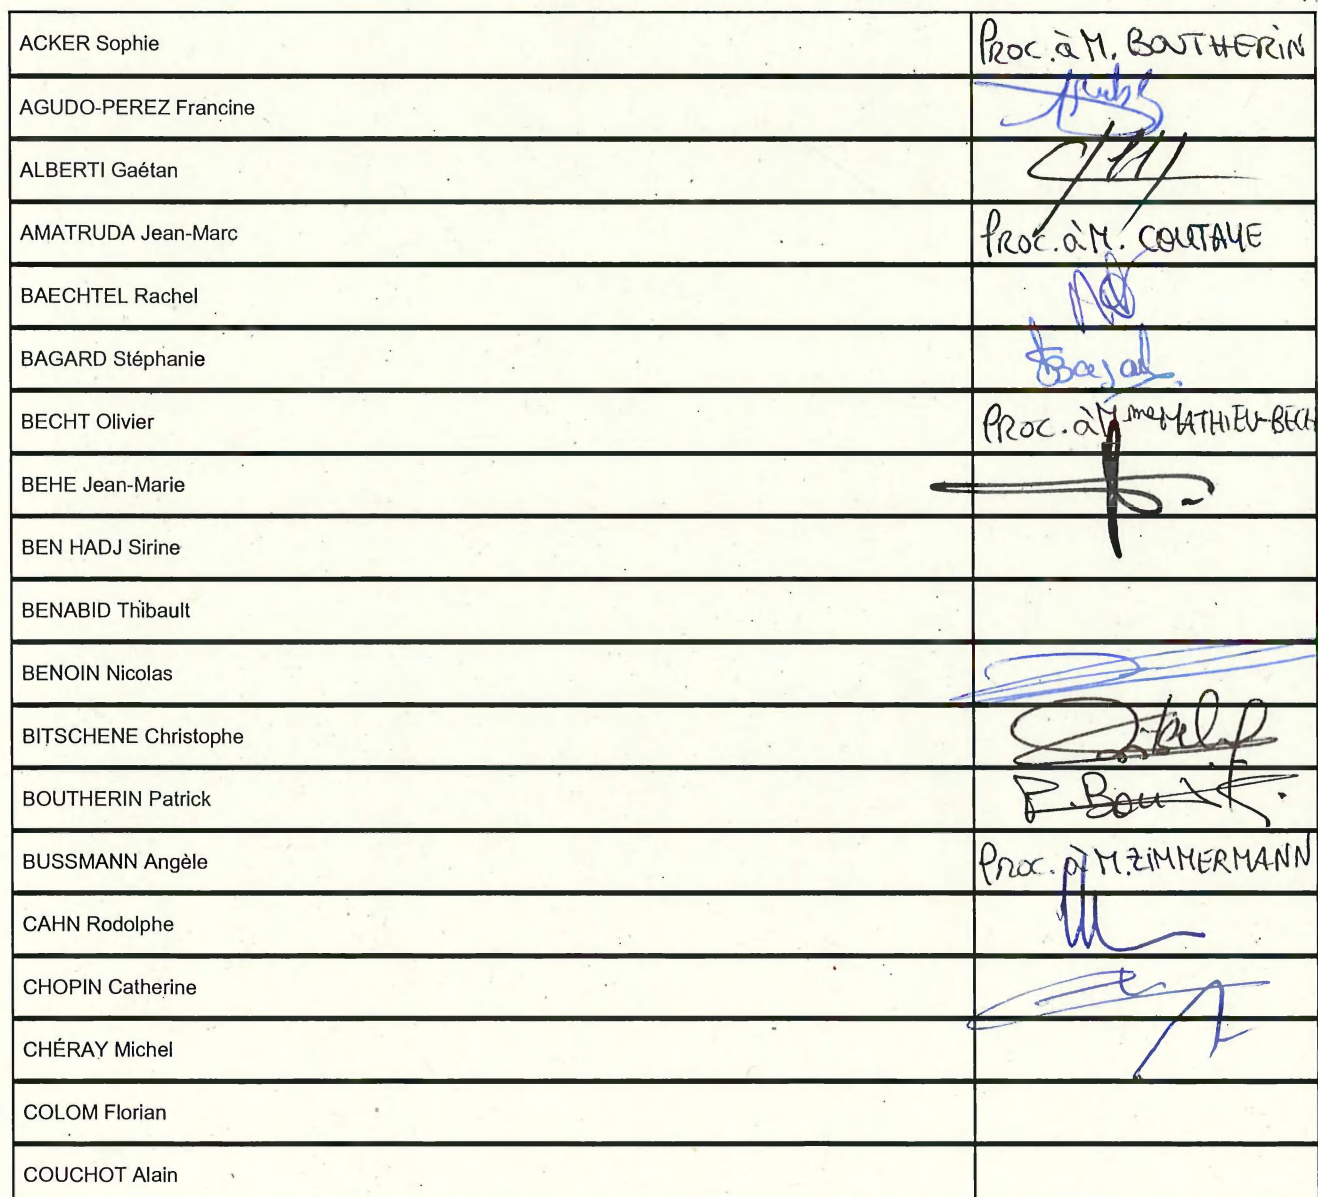 ACKER Sophie Proc. à M. BOUTHERIN
AGUDO-PEREZ Francine
ALBERTI Gaétan
AMATRUDA Jean-Marc Proc. à M. COUTAYE
BAECHTEL Rachel
BAGARD Stéphanie
BECHT Olivier Proc. à Mme MATHIEU-BECH
BEHE Jean-Marie
BEN HADJ Sirine
BENABID Thibault
BENOIN Nicolas
BITSCHENE Christophe
BOUTHERIN Patrick
BUSSMANN Angèle Proc. à M. ZIMMERMANN
CAHN Rodolphe
CHOPIN Catherine
CHÉRAY Michel
COLOM Florian
COUCHOT Alain